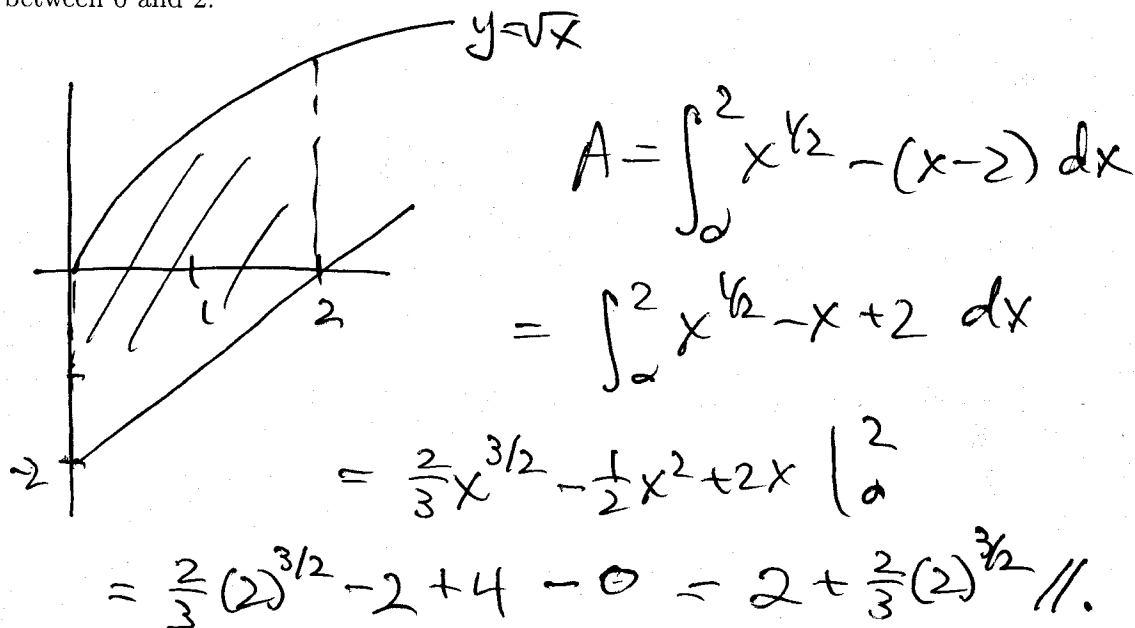 between 0 and 2.
y=√x
A = ∫₀² x^{1/2} - (x-2) dx
1
2
= ∫₀² x^{1/2} - x + 2 dx
-2
= 2/3 x^{3/2} - 1/2 x² + 2x |₀²
= 2/3 (2)^{3/2} - 2 + 4 - 0 = 2 + 2/3 (2)^{3/2} //.